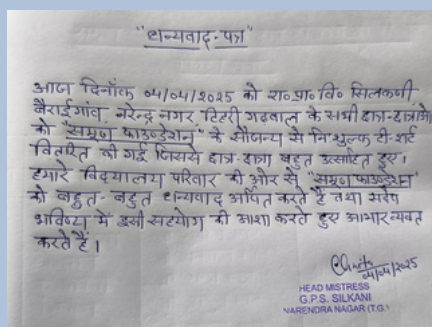 "धन्यवाद-पत्र"
आज दिनाँक 04/04/2025 को रा०प्रा०वि० सिलकणी
बैराईगांव, नरेन्द्र नगर, टिहरी गढ़वाल के सभी छात्र-छात्राओं
को "समूण फाउण्डेशन" के सौजन्य से निःशुल्क टी-शर्ट
वितरित की गई जिससे छात्र-छात्रा बहुत उत्साहित हुए।
हमारे विद्यालय परिवार की ओर से "समूण फाउण्डेशन"
को बहुत-बहुत धन्यवाद अर्पित करते हैं तथा सदैव
भविष्य में इसी सहयोग की आशा करते हुए आभार व्यक्त
करते हैं।
04/04/2025
HEAD MISTRESS
G.P.S. SILKANI
NARENDRA NAGAR (T.G.)